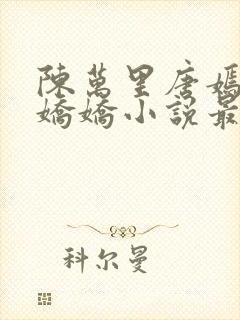 陳萬里唐嫣
嬌嬌小說最
科尔曼